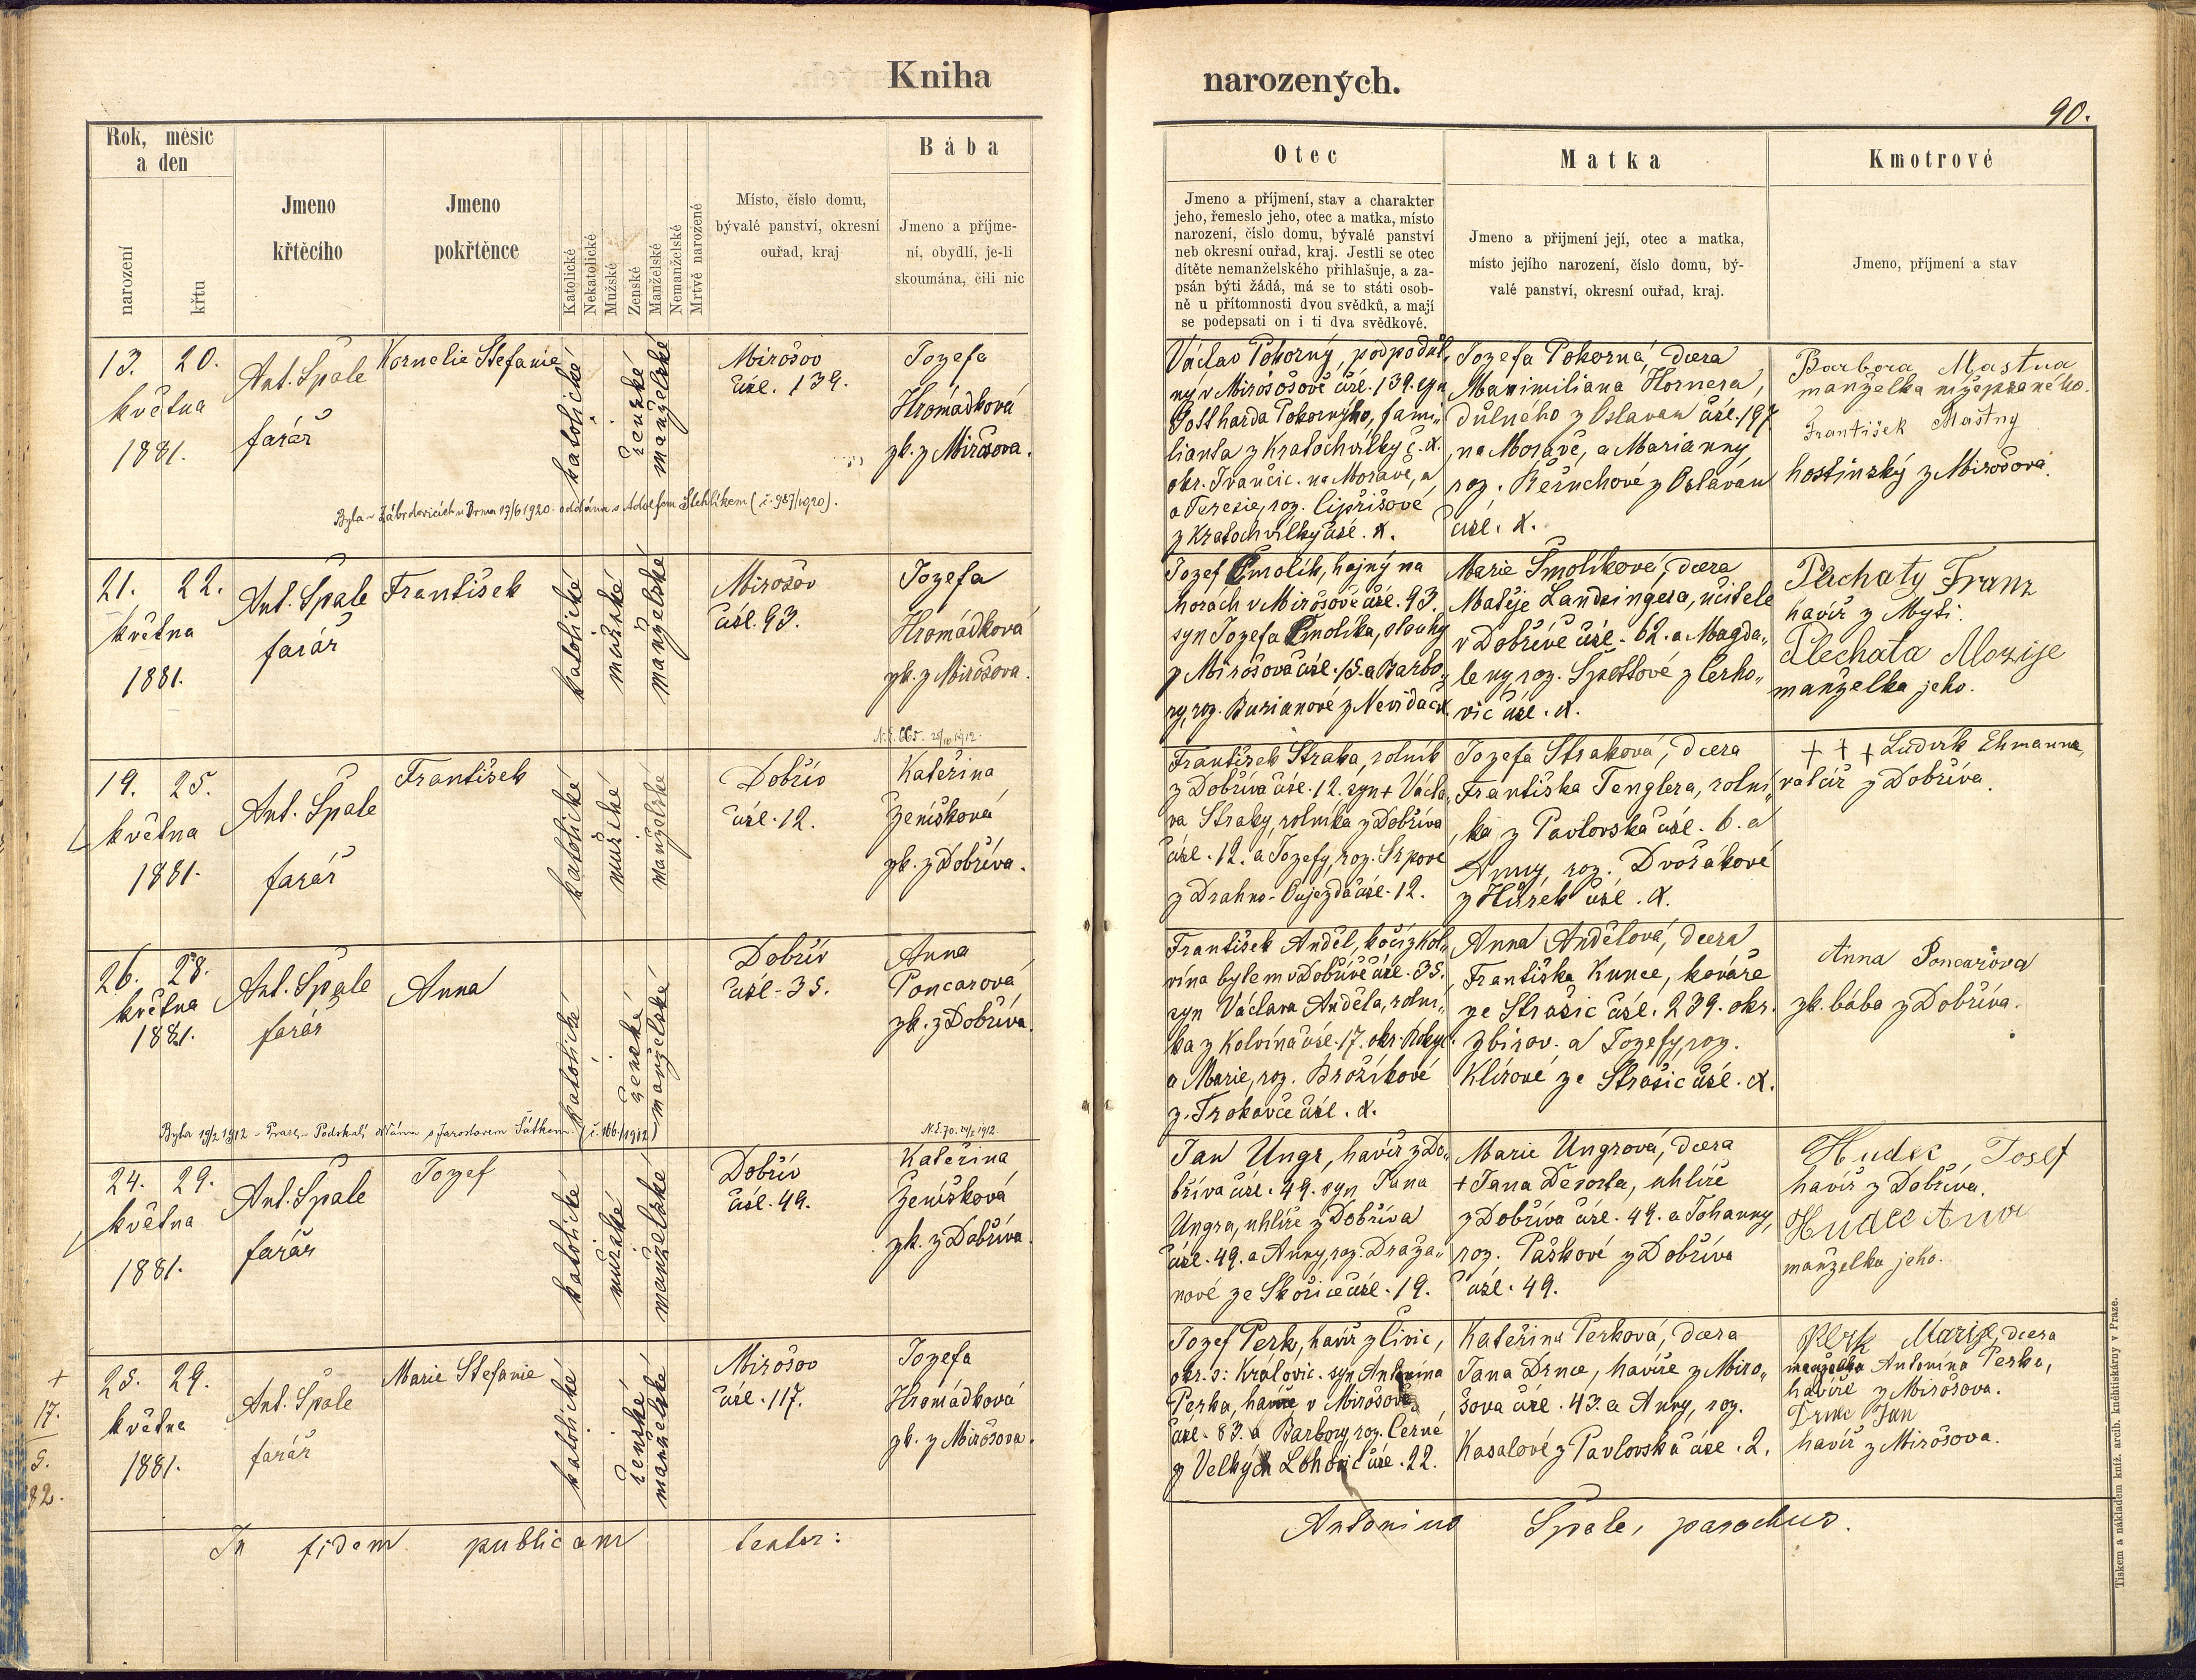 Kniha
narozených.
90.
Rok, měsíc
a den
narození
křtu
Jmeno
křtěcího
Jmeno
pokřtěnce
Katolické
Nekatolické
Mužské
Ženské
Manželské
Nemanželské
Mrtvě narozené
Místo, číslo domu,
bývalé panství, okresní
ouřad, kraj
Bába
Jmeno a příjme-
ní, obydlí, je-li
skoumána, čili nic
Otec
Jmeno a příjmení, stav a charakter
jeho, řemeslo jeho, otec a matka, místo
narození, číslo domu, bývalé panství
neb okresní ouřad, kraj. Jestli se otec
dítěte nemanželského přihlašuje, a za-
psán býti žádá, má se to státi osob-
ně u přítomnosti dvou svědků, a mají
se podepsati on i ti dva svědkové.
Matka
Jmeno a přijmení její, otec a matka,
místo jejího narození, číslo domu, bý-
valé panství, okresní ouřad, kraj.
Kmotrové
Jmeno, příjmení a stav
13. 20.
května
1881.
Ant. Špale
farář
Kornelie Stefanie
katolické
ženské
manželské
Mirošov
čísl. 139.
Jozefa
Hromádková
zk. z Mirošova.
Byla v Zábrdovicích u Brna 17/6 1920 oddána s Adolfem Stehlíkem (č. 987/1920).
Václav Pokorný, podpodul„
ný v Mirošově čísl. 139. syn
Gottharda Pokorného, fami„
lianta z Kratochvilky č. X.
okr. Ivančic. na Moravě, a
a Terezie, roz. Cipřišové
z Kratochvilky čísl. X.
Jozefa Pokorná, dcera
Maximiliana Hornera,
důlného z Oslavan čísl. 197
na Moravě, a Marianny,
roz. Řeřuchové z Oslavan
čísl. X.
Barbora Mastna
manželka nížepsaného.
František Mastny
hostinský z Mirošova.
21. 22.
května
1881.
Ant. Špale
farář
František
katolické
mužské
manželské
Mirošov
čísl. 93.
Jozefa
Hromádková
zk. z Mirošova.
N. č. 665. 25/10 1912.
Jozef Smolík, hajný na
horách v Mirošově čísl. 93.
syn Jozefa Smolíka, slouhy
z Mirošova čísl. 15. a Barbo„
ry, roz. Burianové z Nevid čX.
Marie Smolíkové, dcera
Matěje Landsingera, učitele
v Dobřívě čísl. 62. a Magda„
leny, roz. Spottové z Cerho„
vic čísl. X.
Plechaty Franz
havíř z Myti.
Plechata Marije
manželka jeho.
19. 25.
května
1881.
Ant. Špale
farář
František
katolické
mužské
manželské
Dobřív
čísl. 12.
Kateřina
Ženíšková
zk. z Dobříva.
František Straka, rolník
z Dobříva čísl. 12. syn + Václa„
va Straky, rolníka z Dobříva
čísl. 12. a Jozefy, roz. Srpové
z Drahno-Oujezda čísl. 12.
Jozefa Straková, dcera
Františka Tenglera, rolní„
ka z Pavlovska čísl. 6. a
Anny, roz. Dvořákové
z Hůrek čísl. X.
+ + + Ludvík Ehmann,
valcíř z Dobříva.
26. 28.
května
1881.
Ant. Špale
farář
Anna
katolické
ženské
manželské
Dobřív
čísl. 35.
Anna
Poncarová
zk. z Dobříva.
Byla 19/2 1912 v Praze - Podskalí oddána s Jaroslavem Šátkem (č. 166/1912)
N. č. 70. 1912
František Anděl, kočí z Kol„
vína bytem v Dobřívě čísl. 35.
syn Václava Anděla, rolní„
ka z Kolvína čísl. 17. okr. Rokyc.
a Marie, roz. Brožíkové
z Trokavce čísl. X.
Anna Andělová, dcera
Františka Kunce, kováře
ze Strašic čísl. 239. okr.
zbirov. a Jozefy, roz.
Klírové ze Strašic čísl. X.
Anna Poncarova
zk. bába z Dobříva.
24. 29.
května
1881.
Ant. Špale
farář
Jozef
katolické
mužské
manželské
Dobřív
čísl. 49.
Kateřina
Ženíšková
zk. z Dobříva.
Jan Ungr, havíř z Do„
bříva čísl. 49. syn Jana
Ungra, uhlíře z Dobříva
čísl. 49. a Anny, roz. Draža„
nové ze Skořice čísl. 19.
Marie Ungrová, dcera
+ Jana Desorta, uhlíře
z Dobříva čísl. 49. a Johanny,
roz. Paškové z Dobříva
čísl. 49.
Hudec Josef
havíř z Dobříva.
Hudec Anna
manželka jeho.
+
17.
5.
82.
25. 29.
května
1881.
Ant. Špale
farář
Marie Stefanie
katolické
ženské
manželské
Mirošov
čísl. 117.
Jozefa
Hromádková
zk. z Mirošova.
Jozef Perk, havíř z Civic,
okr. s: Královic. syn Antonína
Perka, havíře v Mirošově
čísl. 83. a Barbory, roz. Černé
z Velkých Lohovic čísl. 22.
Kateřina Perková, dcera
Jana Drnce, havíře z Miro„
šova čísl. 43. a Anny, roz.
Kasalové z Pavlovska čísl. 2.
Perk Marije, dcera
manželka Antonína Perka,
havíře z Mirošova.
Drnc Jan
havíř z Mirošova.
In fidem publicam testor:
Antonius Špale, parochus.
Tiskem a nákladem kníž. arcib. knihtiskárny v Praze.